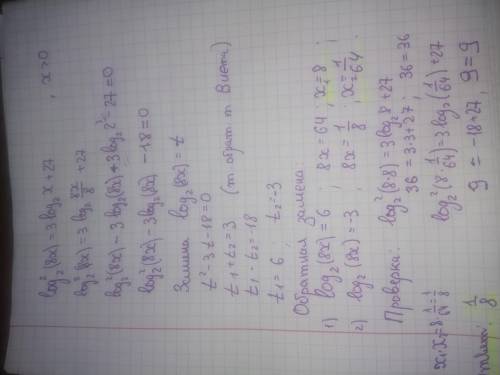 log₂²(8x) = 3log₂x + 27 , x>0
log₂²(8x) = 3log₂ 8x/8 + 27
log₂²(8x) - 3log₂(8x) + 3log₂2³ - 27 = 0
log₂²(8x) - 3log₂(8x) - 18 = 0
Замена log₂(8x) = t
t² - 3t - 18 = 0
t₁ + t₂ = 3 (т обрат. т Виета)
t₁ - t₂ = -18
t₁ = 6 ; t₂ = -3
Обратная замена:
1) log₂(8x) = 6 ; 8x = 64 ; x₁ = 8 ;
2) log₂(8x) = -3 ; 8x = 1/8 ; x = 1/64 ;
Проверка: log₂²(8·8) = 3log₂8 + 27
36 = 3·3 + 27 , 36 = 36
log₂²(8·1/64) = 3log₂(1/64) + 27
9 = -18 + 27, 9 = 9
x₁·x₂ = 8·1/64 = 1/8
1/8